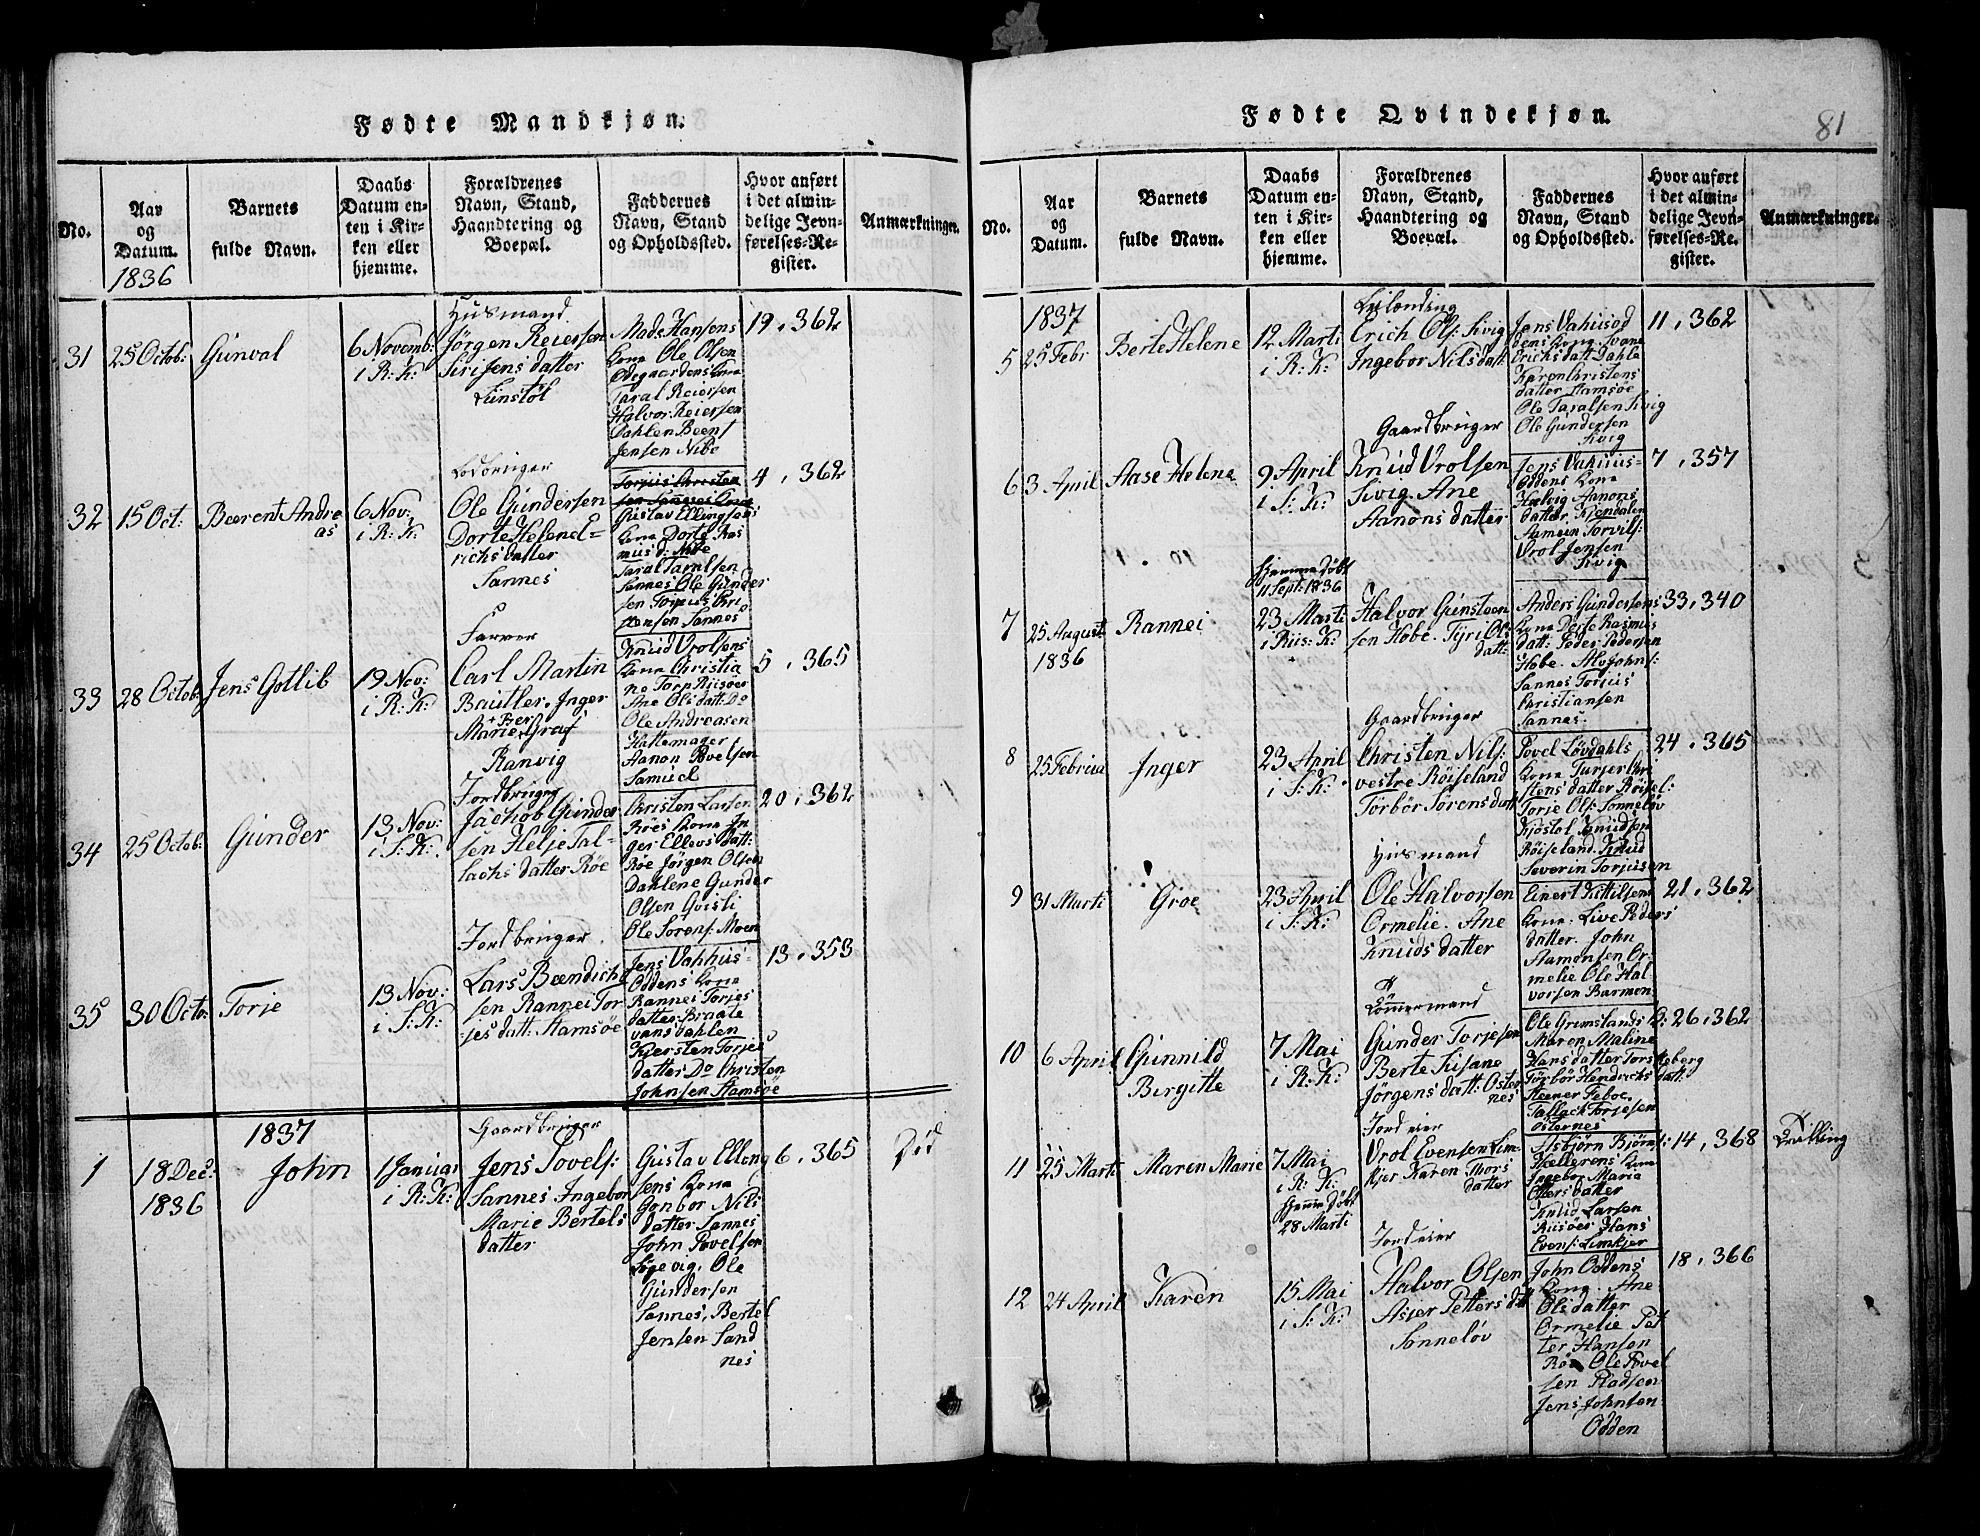 Fødte Mandkjøn.
No.
Aar
og
Datum.
1836
Barnets
fulde Navn.
Daabs
Datum en-
ten i Kir-
ken eller
hjemme.
Forældrenes
Navn, Stand,
Haandtering og
Boepæl.
Faddernes
Navn, Stand
og Opholdssted.
Hvor anført
i det almin-
delige Jevn-
førelses-Re-
gister.
Anmærkninger.
31
25 Octob:
Gunval
6 Novemb:
i R: K:
Husmand
Jørgen Reiersen
Siri Jens datter
Lunstøl
Mads Hansens
kone Ole Olsen
Ødegaardens kone
Taral Reiersen
Halvor Reiersen
Dahlen Beent
Jensen Nibe
19, 362
32
15 Oct:
Beerent Andre
as
6 Nov:
i R: K:
Ole Gundersen
Dorte Helene
richs datter
Sannes
Gustav Ellingsens
kone Dorte Ras
mus d: Nibe
Taral Taralsen
Sannes Ole Gunder
sen Torjus Chri
stensen Sannes
4, 362
33
28 Octob:
Jens Gotlib
19 Nov:
i R: K:
Farver
Carl Martin
Bautler, Inger
Marie Graf
Ranvig
Knud Vrolsens
kone Christia
ne Torp Riisøer
Ane Ols datt: Do
Ole Andreasen
Hattemager
Aanon Povelsen
Samuel
5, 365
34
25 Octob:
Gunder
13 Nov:
i S: K:
Jordbruger
Jachob Gunder
sen Helje Tal-
lachs datter Røe
Christen Larsen
Røes kone In
ger Ellevs datt:
Røe Jørgen Olsen
Dahlene Gunder
Olsen Gvisti
Ole Sørens: Moen
20, 362
35
30 Octo:
Torje
13 Nov:
i S: K:
Jordbruger
Lars Beendich
sen Rannei Tor
jes datt: Stamsøe
Jens Vahhus-
Oddens kone
Rannei Torjes
datter Braate
vans dahlen
Kjersten Torjes
datter Do Christen
Johnsen Stamsøe
13, 353
1837
1
18 Dec:
1836
John
1 Januar
i R: K:
Gaardbruger
Jens Povels:
Sannes Ingebor
Marie Bertels
datter
Gustav Elling
sens kone
Gonbor Nils
datter Sannes
John Povelsen
Søgevig, Ole
Gundersen
Sannes, Bertel
Jensen Sand
nes
6, 365
Død
Fødte Qvindekjøn.
81
No.
Aar
og
Datum.
Barnets
fulde Navn.
Daabs
Datum en-
ten i Kir-
ken eller
hjemme.
Forældrenes
Navn, Stand,
Haandtering og
Boepæl.
Faddernes
Navn, Stand
og Opholdssted.
Hvor anført
i det almin-
delige Jevn-
førelses-Re-
gister.
Anmærkninger.
1837
5
25 Febr
Berte Helene
12 Marti
i R: K:
Leilending
Erich Ols: Sivig
Ingebor Nils datt:
Jens Vahusod
dens kone
Erichs datt Dahle
Karen Christens
datter Stamsøe
Ole Taralsen Sivig
Ole Gundersen
Sivig
11, 362
6
3 April
Aase Helene
9 April
i S: K:
Gaardbruger
Knud Vrolsen
Sivig. Ane
Aanons datter
Jens Vahuus-
Oddens kone
Aanons
datter
Vrol Jensen
Sivig
7, 357
7
25 August
1836
Rannei
Hjemme døbt
11 Sept: 1836
23 Marti
i Riis: K:
Halvor Gunsteen
sen Hobe. Tyri Ols
datt:
Anders Gundersens
kone Dorte Rasmus
datt: Peder Pedersen
Hobe. Alv Johns:
Sannes Torjus
Christiansen
Sannes.
33, 340
8
25 Februa
Inger
23 April
i S: K:
Gaardbruger
Christen Nils:
vestre Røiseland
Torbør Sørens datt
Povel Løvdahls
kone Turjer Chri
stens datter Røisel:
Torje Ols: Sonneløv
Kjøstol Knudsen
Røiseland. Knud
Severin Torjusen
24, 365
9
31 Marti
Groe
23 April
i S: K:
Husmand
Ole Halvorsen
Ormelie. Ane
Knuds datter
Einert Kittilsens
kone: Live Peders
datter. John
Aamonsen Or-
melie Ole Hal
vorsen Barmen
21, 362
10
6 April
Gunnild
Birgitte
7 Mai
i R: K:
Tømmermand
Gunder Torjesen
Berte Susane
Jørgens datt: Oster
nes
Ole Grimslands D:
Maren Maline
Hans datter
Torbør Hendrichs datt:
Feboe.
Tallack Torjesen
Osternes
26, 362
11
25 Marti
Maren Marie
7 Mai
i R: K:
Hjemme døbt
28 Marti
Jordeier
Vrol Evensen Lim-
kjer Karen Thors
datter
Asbjørn Bjørns:
Hellerens kone
Ingebor Maria
Ollers datter
Knud Larsen
Riisøer Hans
Evens: Limkjer
14, 368
Tvilling
12
24 April
Karen
15 Mai
i S: K:
Jordeier
Halvor Olsen
Asser Petters dtt
Sonneløv
John Oddens
kone. Ane
Ols datter
Ormelie Pet
ter Hansen
Røe Ole Povel
sen Pladsen
Jens Johnsen
Odden
18, 366